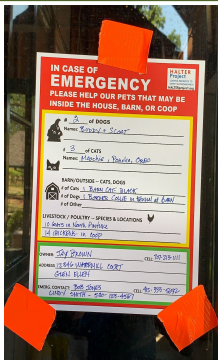 IN CASE OF
EMERGENCY
PLEASE HELP OUR PETS THAT MAY BE
INSIDE THE HOUSE, BARN, OR COOP
HALTER
Project
# 2 of DOGS
Names: BUDDY + SCOUT
# 3 of CATS
Names: Moochie, OREO
BARN/OUTSIDE - CATS, DOGS
# of Cats 1 BARN CAT BLACK
# of Dogs 1 BORDER COLLIE IN BARN
# of Other
LIVESTOCK / POULTRY - SPECIES & LOCATIONS
10 Goats in North Pasture
14 CHICKENS in COOP
OWNER: JAY BROWN CELL
ADDRESS COURT
GLEN ELLEN
EMERG. CONTACT: BOB JONES CELL
LINDY SMITH